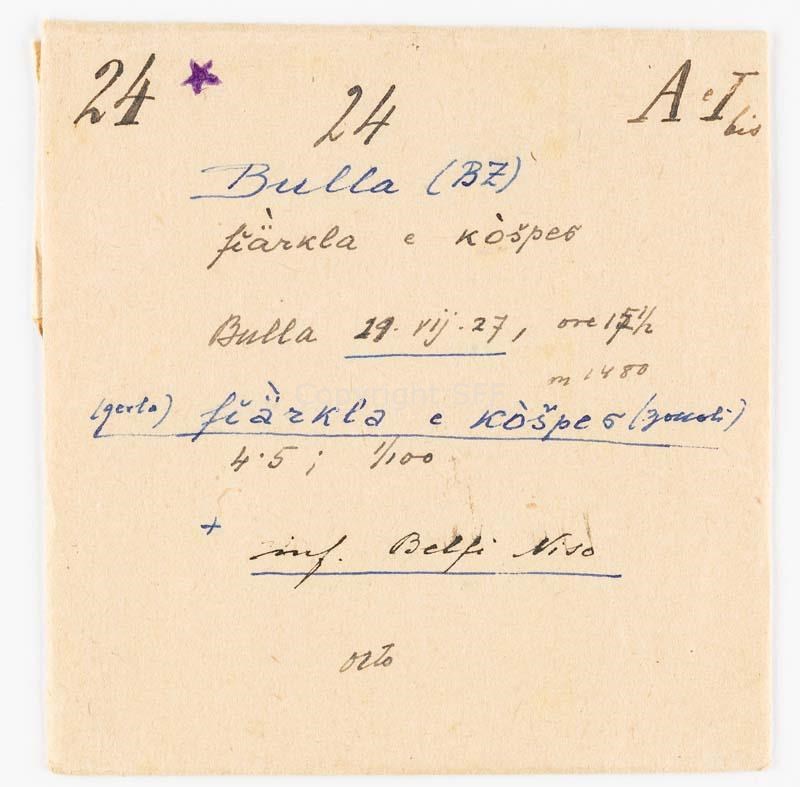 24 24 A e I bis
Bulla (BZ)
fiä̀rkla e kòšpes
Bulla 29. vij. 27, ore 15 1/2
m 1480
(gerla) fiä̀rkla e kòšpes (zoccoli)
4.5 ; 1/100
+
inf. Belfi Niso
orto